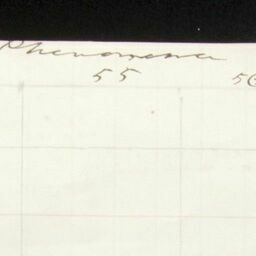 Phenomena
55